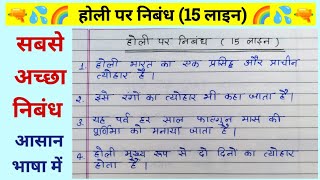 होली पर निबंध (15 लाइन)
सबसे
अच्छा
निबंध
आसान
भाषा में
होली पर निबंध ( 15 लाइन )
1. होली भारत का एक प्रसिद्ध और प्राचीन
त्योहार है।
2. इसे रंगो का त्योहार भी कहा जाता है।
3. यह पर्व हर साल फाल्गुन मास की
पूर्णिमा को मनाया जाता है।
4. होली मुख्य रूप से दो दिनो का त्योहार
होता है।